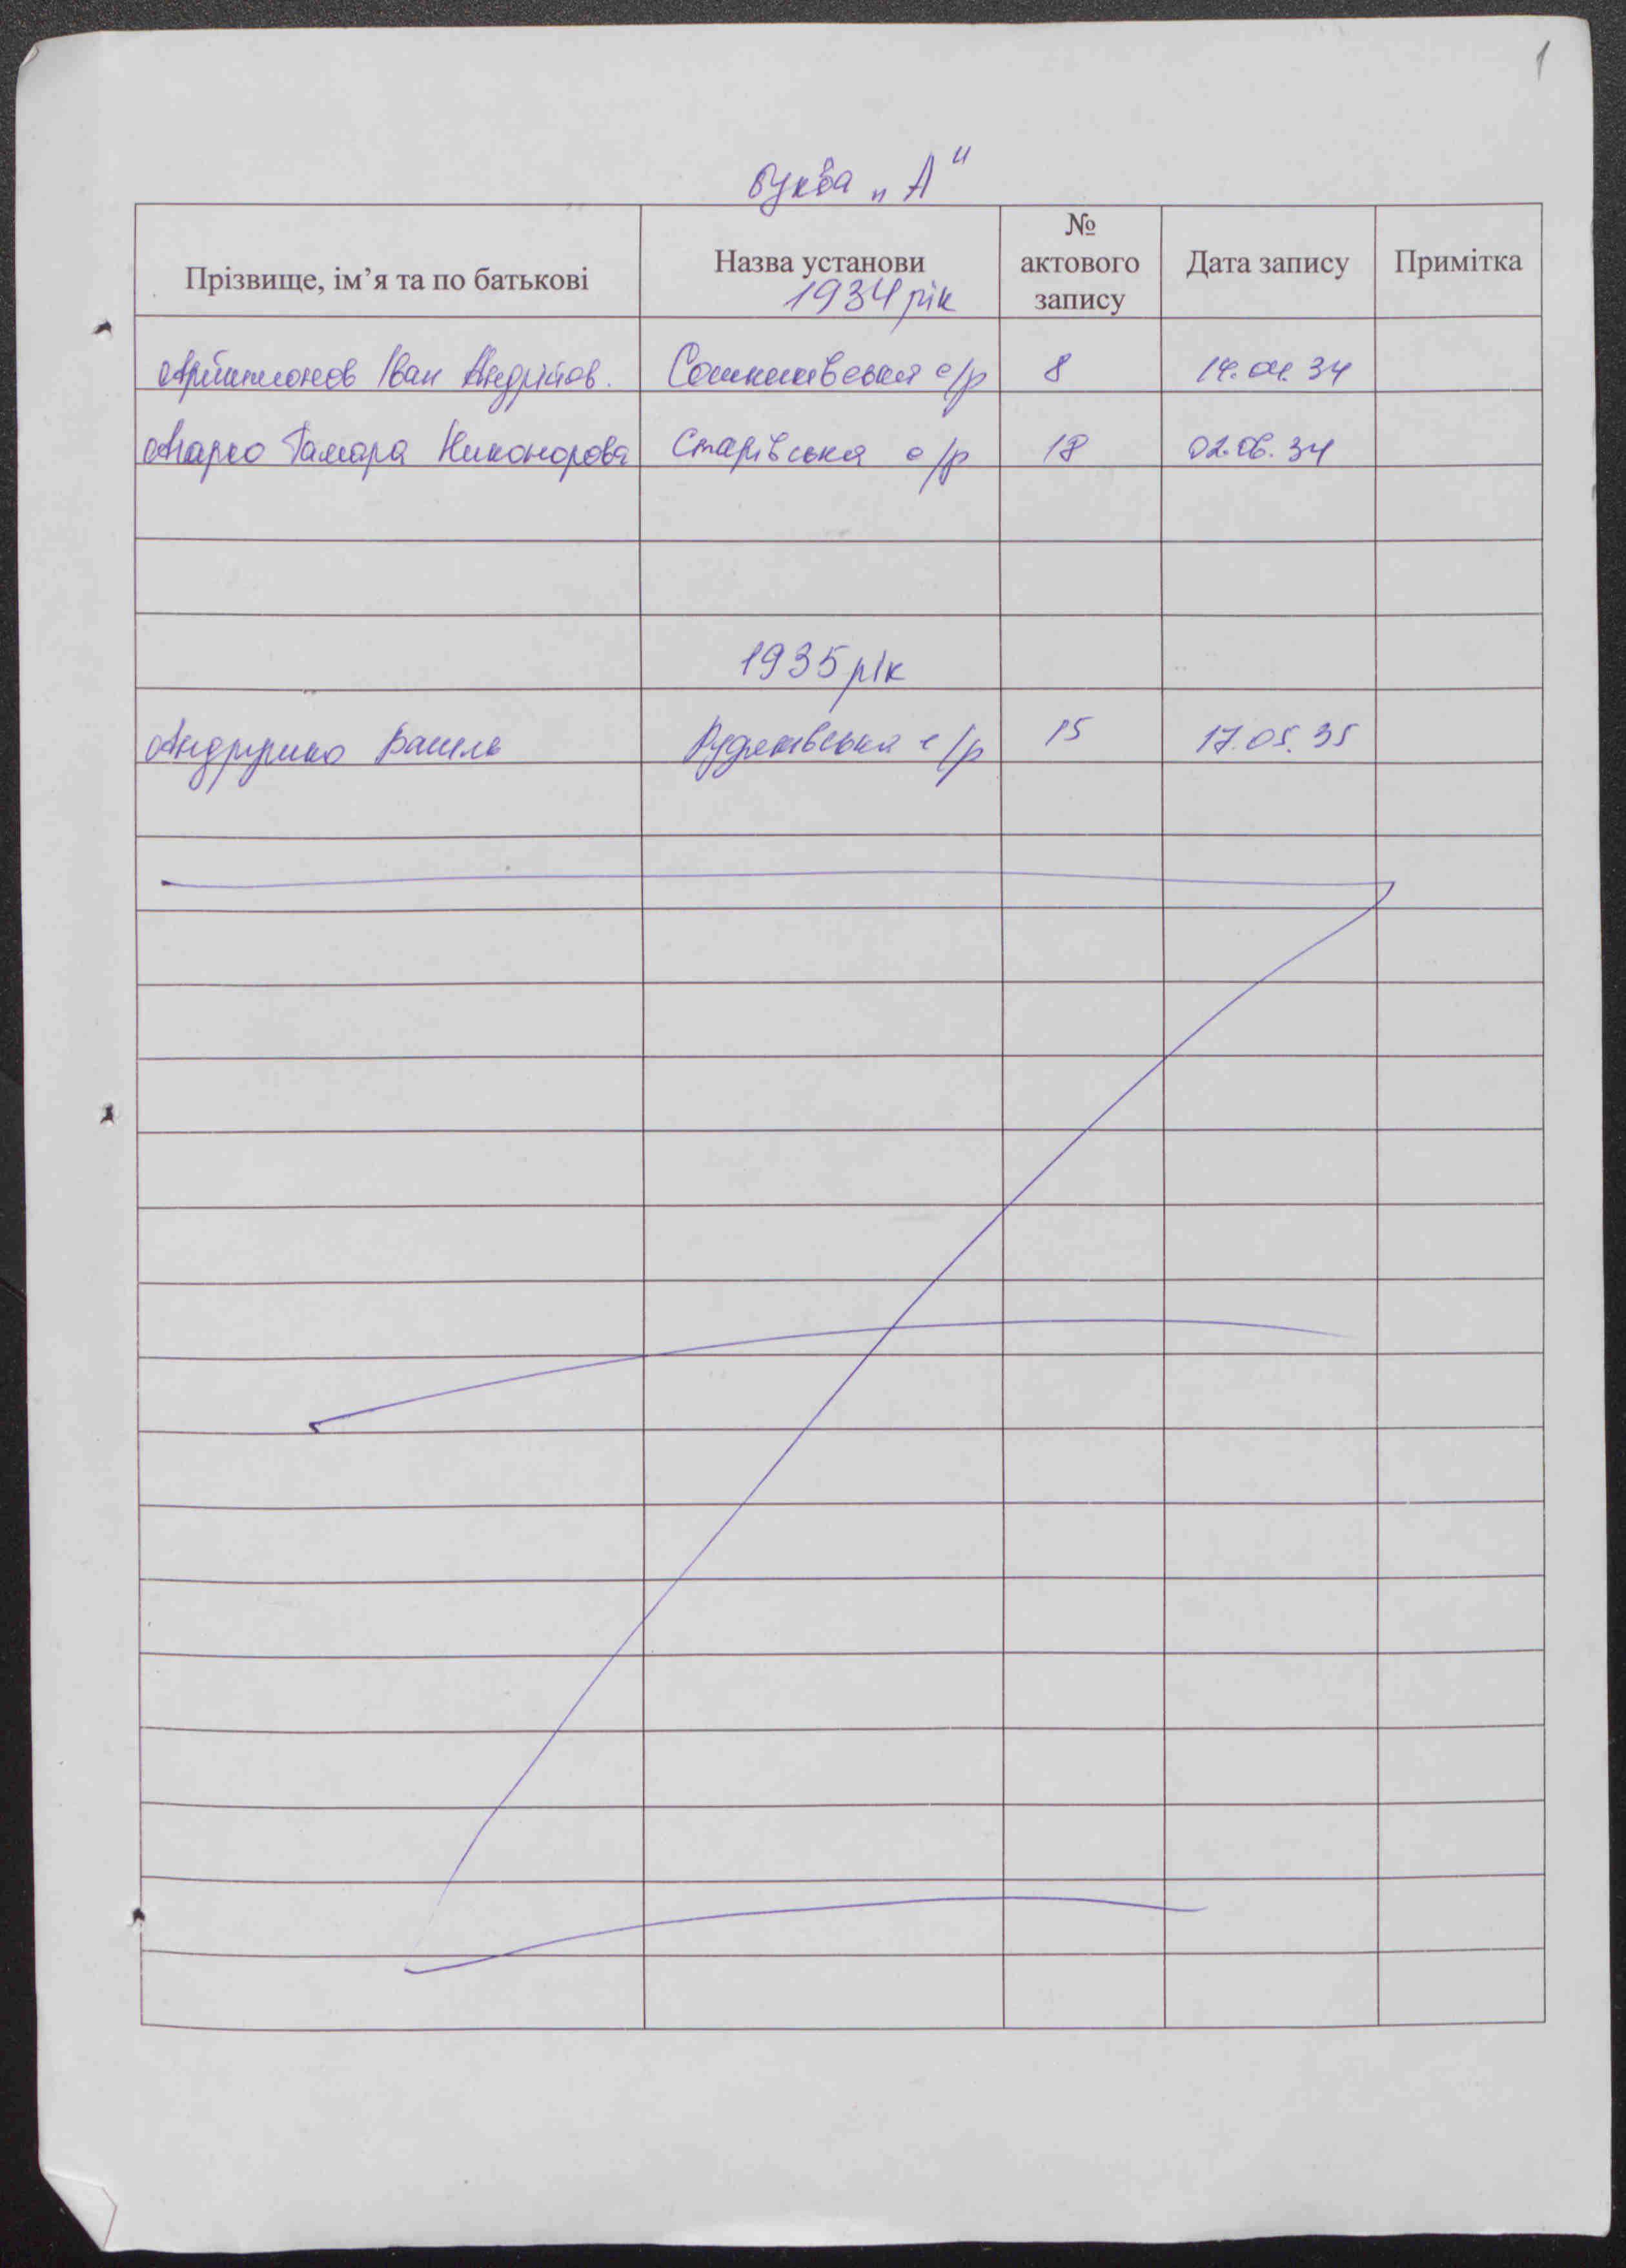 1
буква „А"
Прізвище, ім’я та по батькові Назва установи № актового запису Дата запису Примітка
1934 рік
Іван Андрійов. с/р 8 14.04.34
Тамара Никонорова Старівська с/р 18 02.06.34
1935 рік
с/р 15 17.05.35